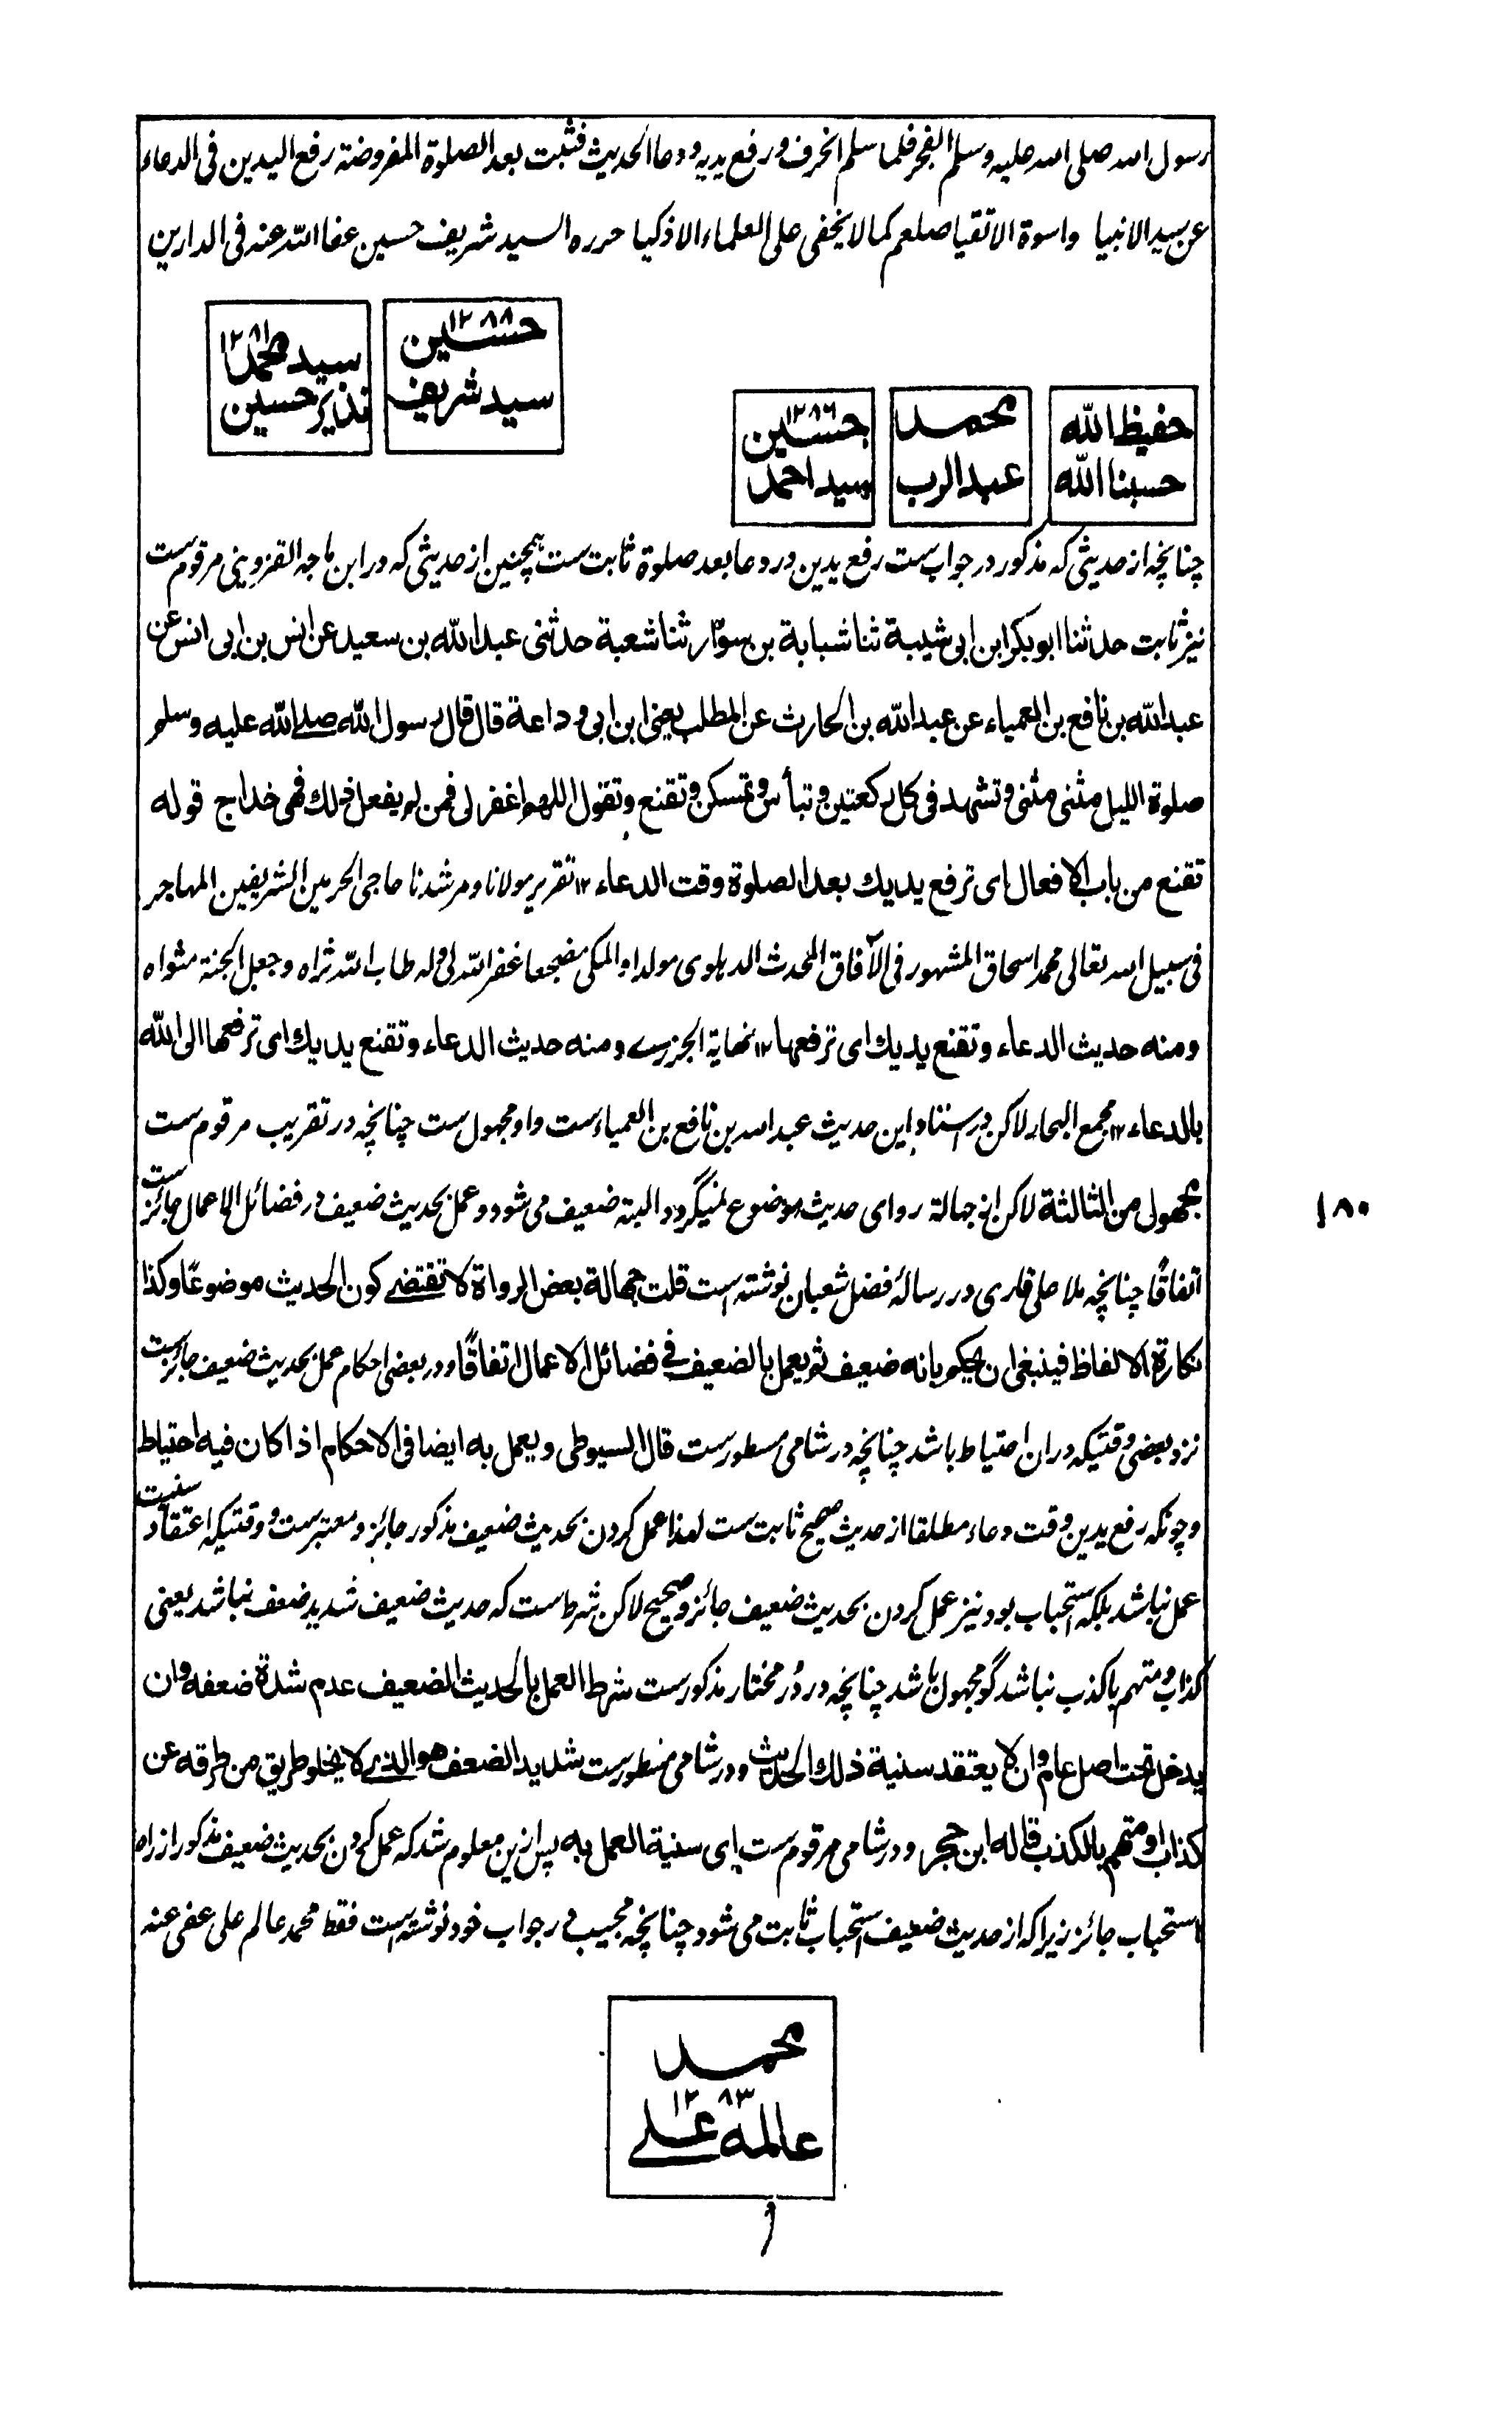 رسول الله صلی الله علیه وسلم الفجر فلما سلم انحرف ورفع یدیه ودعا الحدیث فثبت بعد الصلوة المفروضة رفع الیدین فی الدعاء
عن سید الانبیا واسوة الاتقیا صلعم کما لا یخفی علی العلماء الاذکیا حرره السید شریف حسین عفا الله عنه فی الدارین
حسین ۱۲۸۸ سید شریف
سید محمد ۱۲۸۱ نذیر حسین
حفیظ الله حسبنا الله
محمد عبد الرب
حسین ۱۲۸۶ سید احمد
چنانچه از حدیثی که مذکور در جواب ست رفع یدین در دعا بعد صلوة ثابت ست همچنین از حدیثی که در ابن ماجه القزوینی مرقوم ست
نیز ثابت حدثنا ابو بکر ابن ابی شیبة ثنا شبابة بن سوّار ثنا شعبة حدثنی عبد الله بن سعید عن انس بن ابی انس عن
عبد الله بن نافع بن العمیاء عن عبد الله بن الحارث عن المطلب یعنی ابن ابی وداعة قال قال رسول الله صلی الله علیه وسلم
صلوة اللیل مثنی مثنی وتشهد فی کل رکعتین وتبأس وتمسکن وتقنع وتقول اللهم اغفر لی فمن لم یفعل ذلك فهی خداج قوله
تقنع من باب الافعال ای ترفع یدیك بعد الصلوة وقت الدعاء ۱۲ تقریر مولانا ومرشدنا حاجی الحرمین الشریفین المهاجر
فی سبیل الله تعالی محمد اسحاق المشهور فی الآفاق المحدث الدهلوی مولدا والمکی مضجعا غفر الله لی وله طاب الله ثراه وجعل الجنة مثواه
ومنه حدیث الدعاء وتقنع یدیك ای ترفعها ۱۲ نهایة الجزری ومنه حدیث الدعاء وتقنع یدیك ای ترفعهما الی الله
بالدعاء ۱۲ مجمع البحار لاکن در اسناد این حدیث عبد الله بن نافع بن العمیاء ست واو مجهول ست چنانچه در تقریب مرقوم ست
مجهول من الثالثة لاکن از جهالة روای حدیث موضوع نمیگردد البته ضعیف می شود وعمل بحدیث ضعیف در فضائل الاعمال جائز ست
اتفاقًا چنانچه ملا علی قاری در رسالهٔ فضل شعبان نوشته است قلت جهالة بعض الرواة لا تقتضی کون الحدیث موضوعًا وکذا
نکارة الالفاظ فینبغی ان یحکم بانه ضعیف ثم یعمل بالضعیف فی فضائل الاعمال اتفاقًا ودر بعضی احکام عمل بحدیث ضعیف جائز ست
نزد بعضی وقتیکه در ان احتیاط باشد چنانچه در شامی مسطور ست قال السیوطی ویعمل به ایضا فی الاحکام اذا کان فیه احتیاط
وچونکه رفع یدین وقت دعاء مطلقا از حدیث صحیح ثابت ست لهذا عمل کردن بحدیث ضعیف مذکور جائز ومعتبر ست ووقتیکه اعتقاد سنیت
عمل نباشد بلکه استحباب بود نیز عمل کردن بحدیث ضعیف جائز وصحیح لاکن شرط ست که حدیث ضعیف شدید ضعف نباشد یعنی
کذاب ومتهم باکذب نباشد گو مجهول باشد چنانچه در دُر مختار مذکور ست شرط العمل بالحدیث الضعیف عدم شدة ضعفه وان
یدخل تحت اصل عام وان لا یعتقد سنیة ذلك الحدیث ودر شامی مسطور ست شدید الضعف هو الذی لا یخلو طریق من طرقه عن
کذاب او متهم بالکذب قاله ابن حجر ودر شامی مرقوم ست ای سنیة العمل به پس ازین معلوم شد که عمل کردن بحدیث ضعیف مذکور از راه
استحباب جائز زیرا که از حدیث ضعیف استحباب ثابت می شود چنانچه مجیب در جواب خود نوشته است فقط محمد عالم علی عفی عنه
محمد ۱۲۸۳ عالم علی
۱۸۰